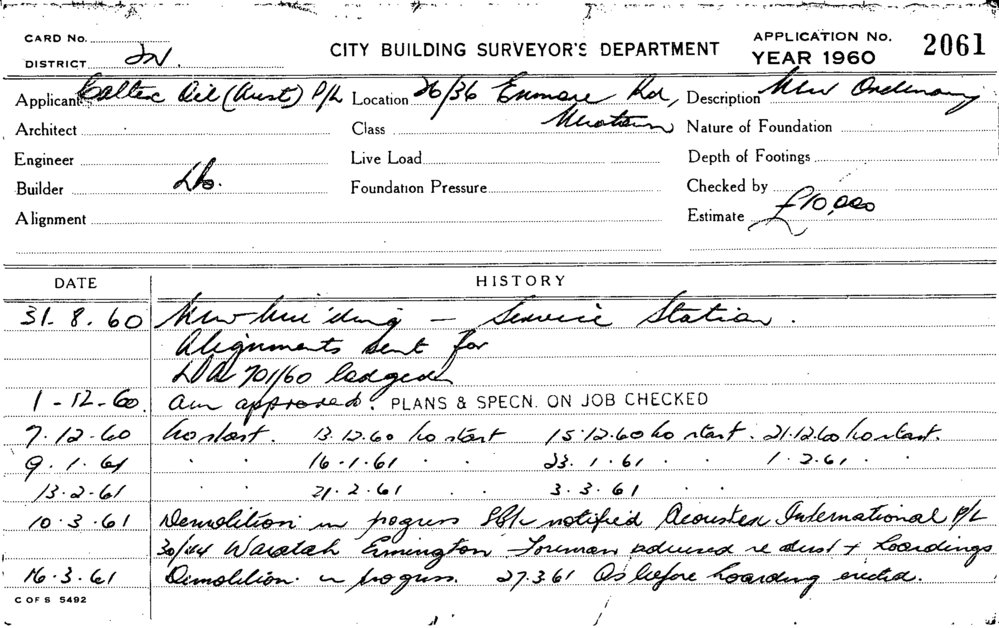 CARD No.
DISTRICT
CITY BUILDING SURVEYOR'S DEPARTMENT
APPLICATION No. 2061
YEAR 1960
Applicant Caltex Oil (Aust) P/L Location 26/36 Enmore Rd, Description New Ordinary
Architect Class Newtown Nature of Foundation
Engineer Live Load Depth of Footings
Builder Foundation Pressure Checked by
Alignment Estimate £10,000
DATE HISTORY
31.8.60 New building – Service Station.
Alignments sent for
701/60 lodged
1-12-60. approved. PLANS & SPECN. ON JOB CHECKED
7.12.60 No start. 13.12.60 No start 15.12.60 No start. 21.12.60 No start.
9.1.61 . . 16.1.61 . . 23.1.61 . . 1.2.61 . .
13.2.61 . . 21.2.61 . . 3.3.61 . .
10.3.61 Demolition in progress notified International P/L
Foreman advised re dust & hoardings
16.3.61 Demolition in progress. 27.3.61 As before hoarding erected.
C OF S 5492